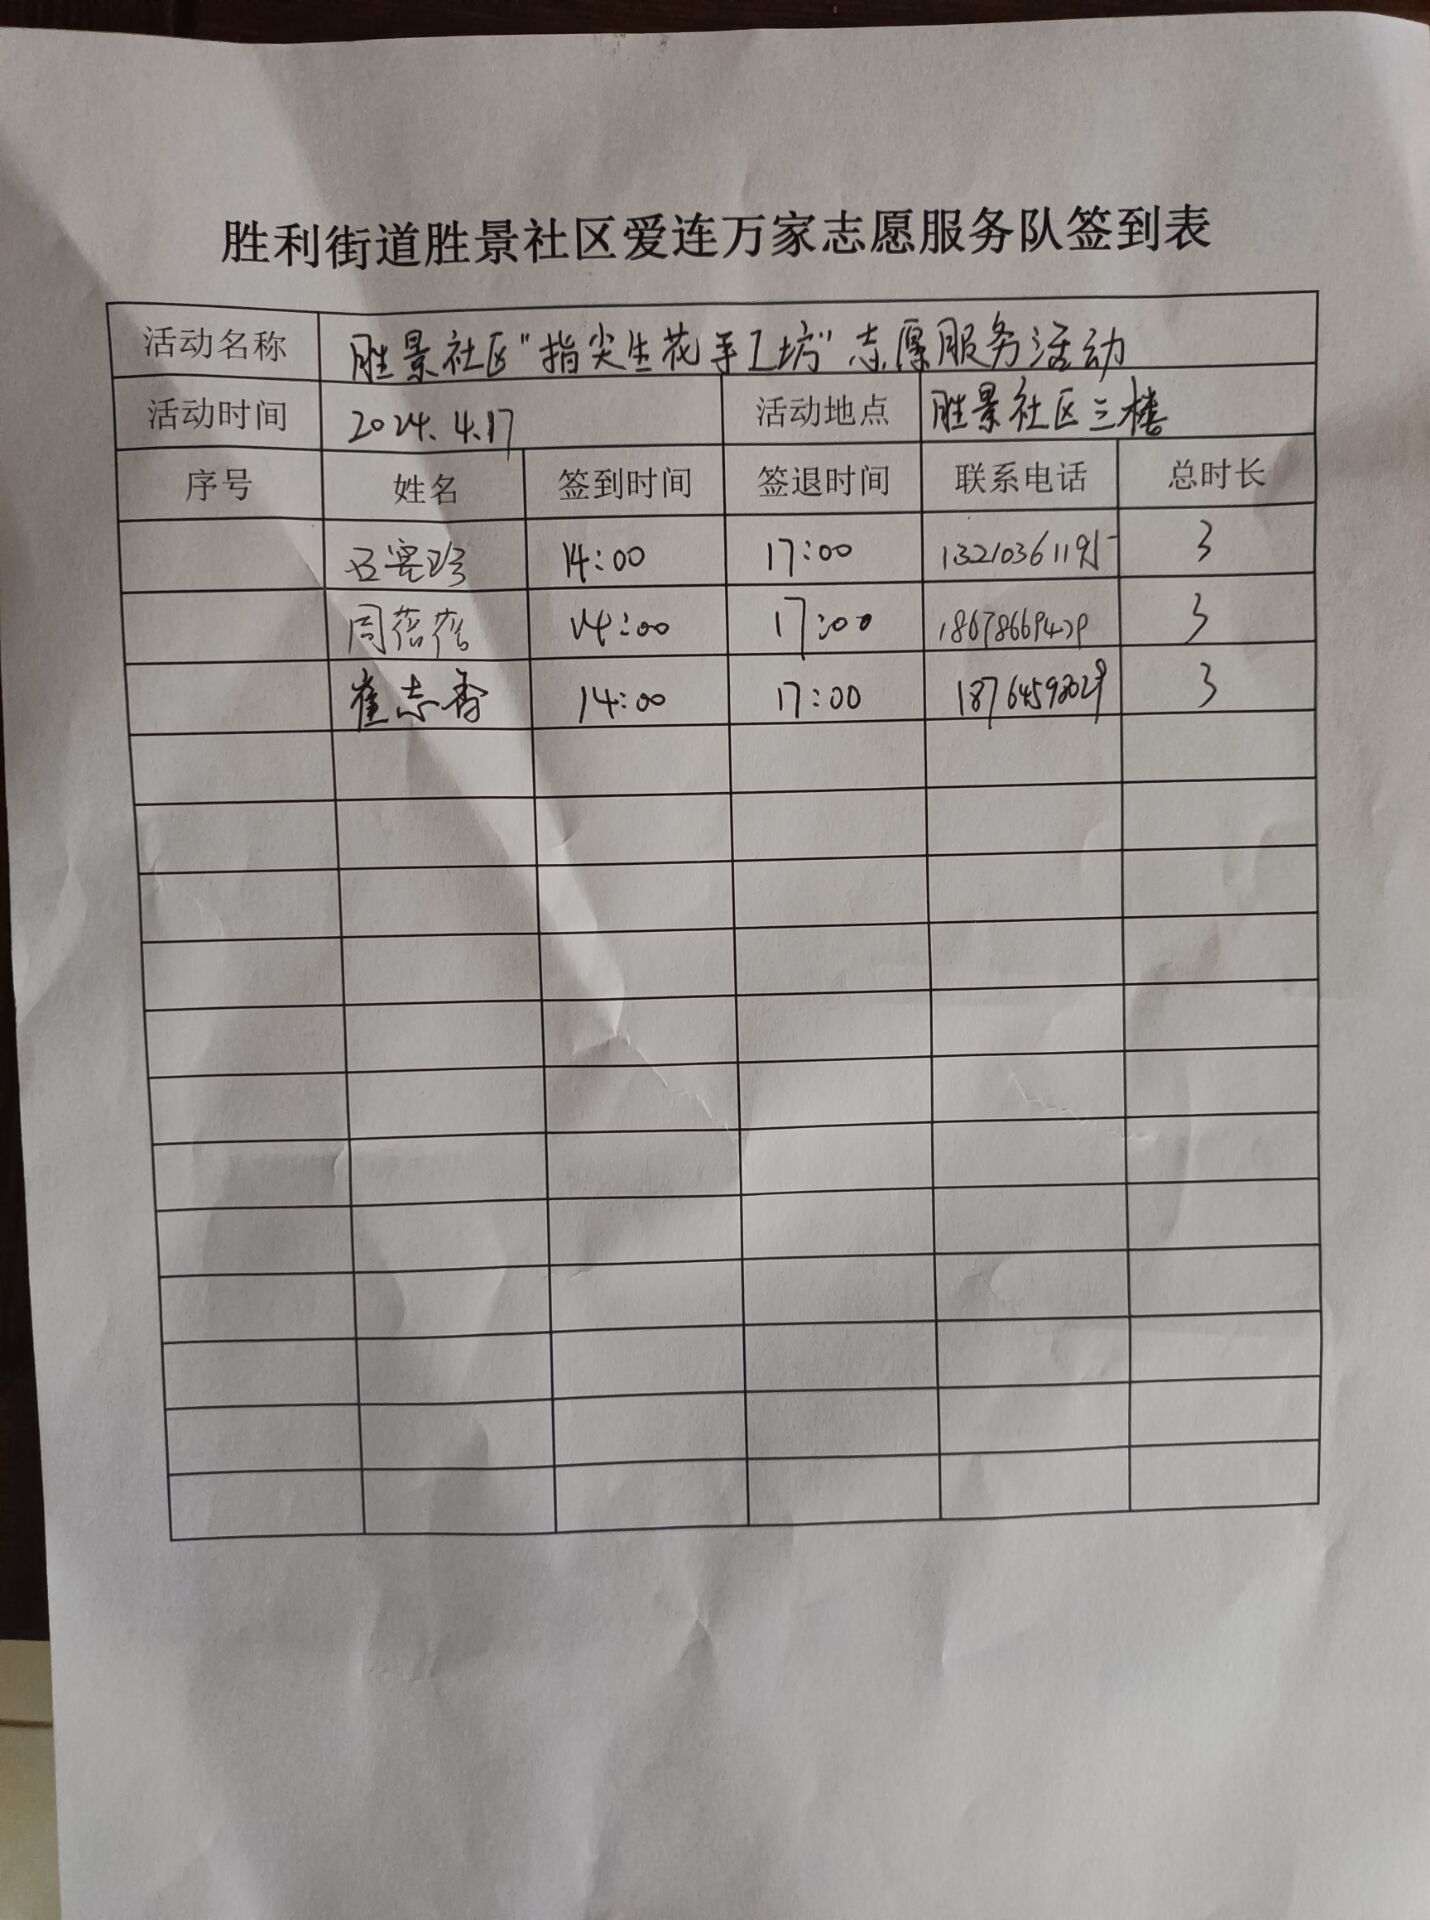 胜利街道胜景社区爱连万家志愿服务队签到表
活动名称 胜景社区"指尖生花手工坊"志愿服务活动
活动时间 2024.4.17 活动地点 胜景社区三楼
序号 姓名 签到时间 签退时间 联系电话 总时长
14:00 17:00 13210361195 3
周蓓蓓 14:00 17:00 18678669429 3
崔志香 14:00 17:00 3